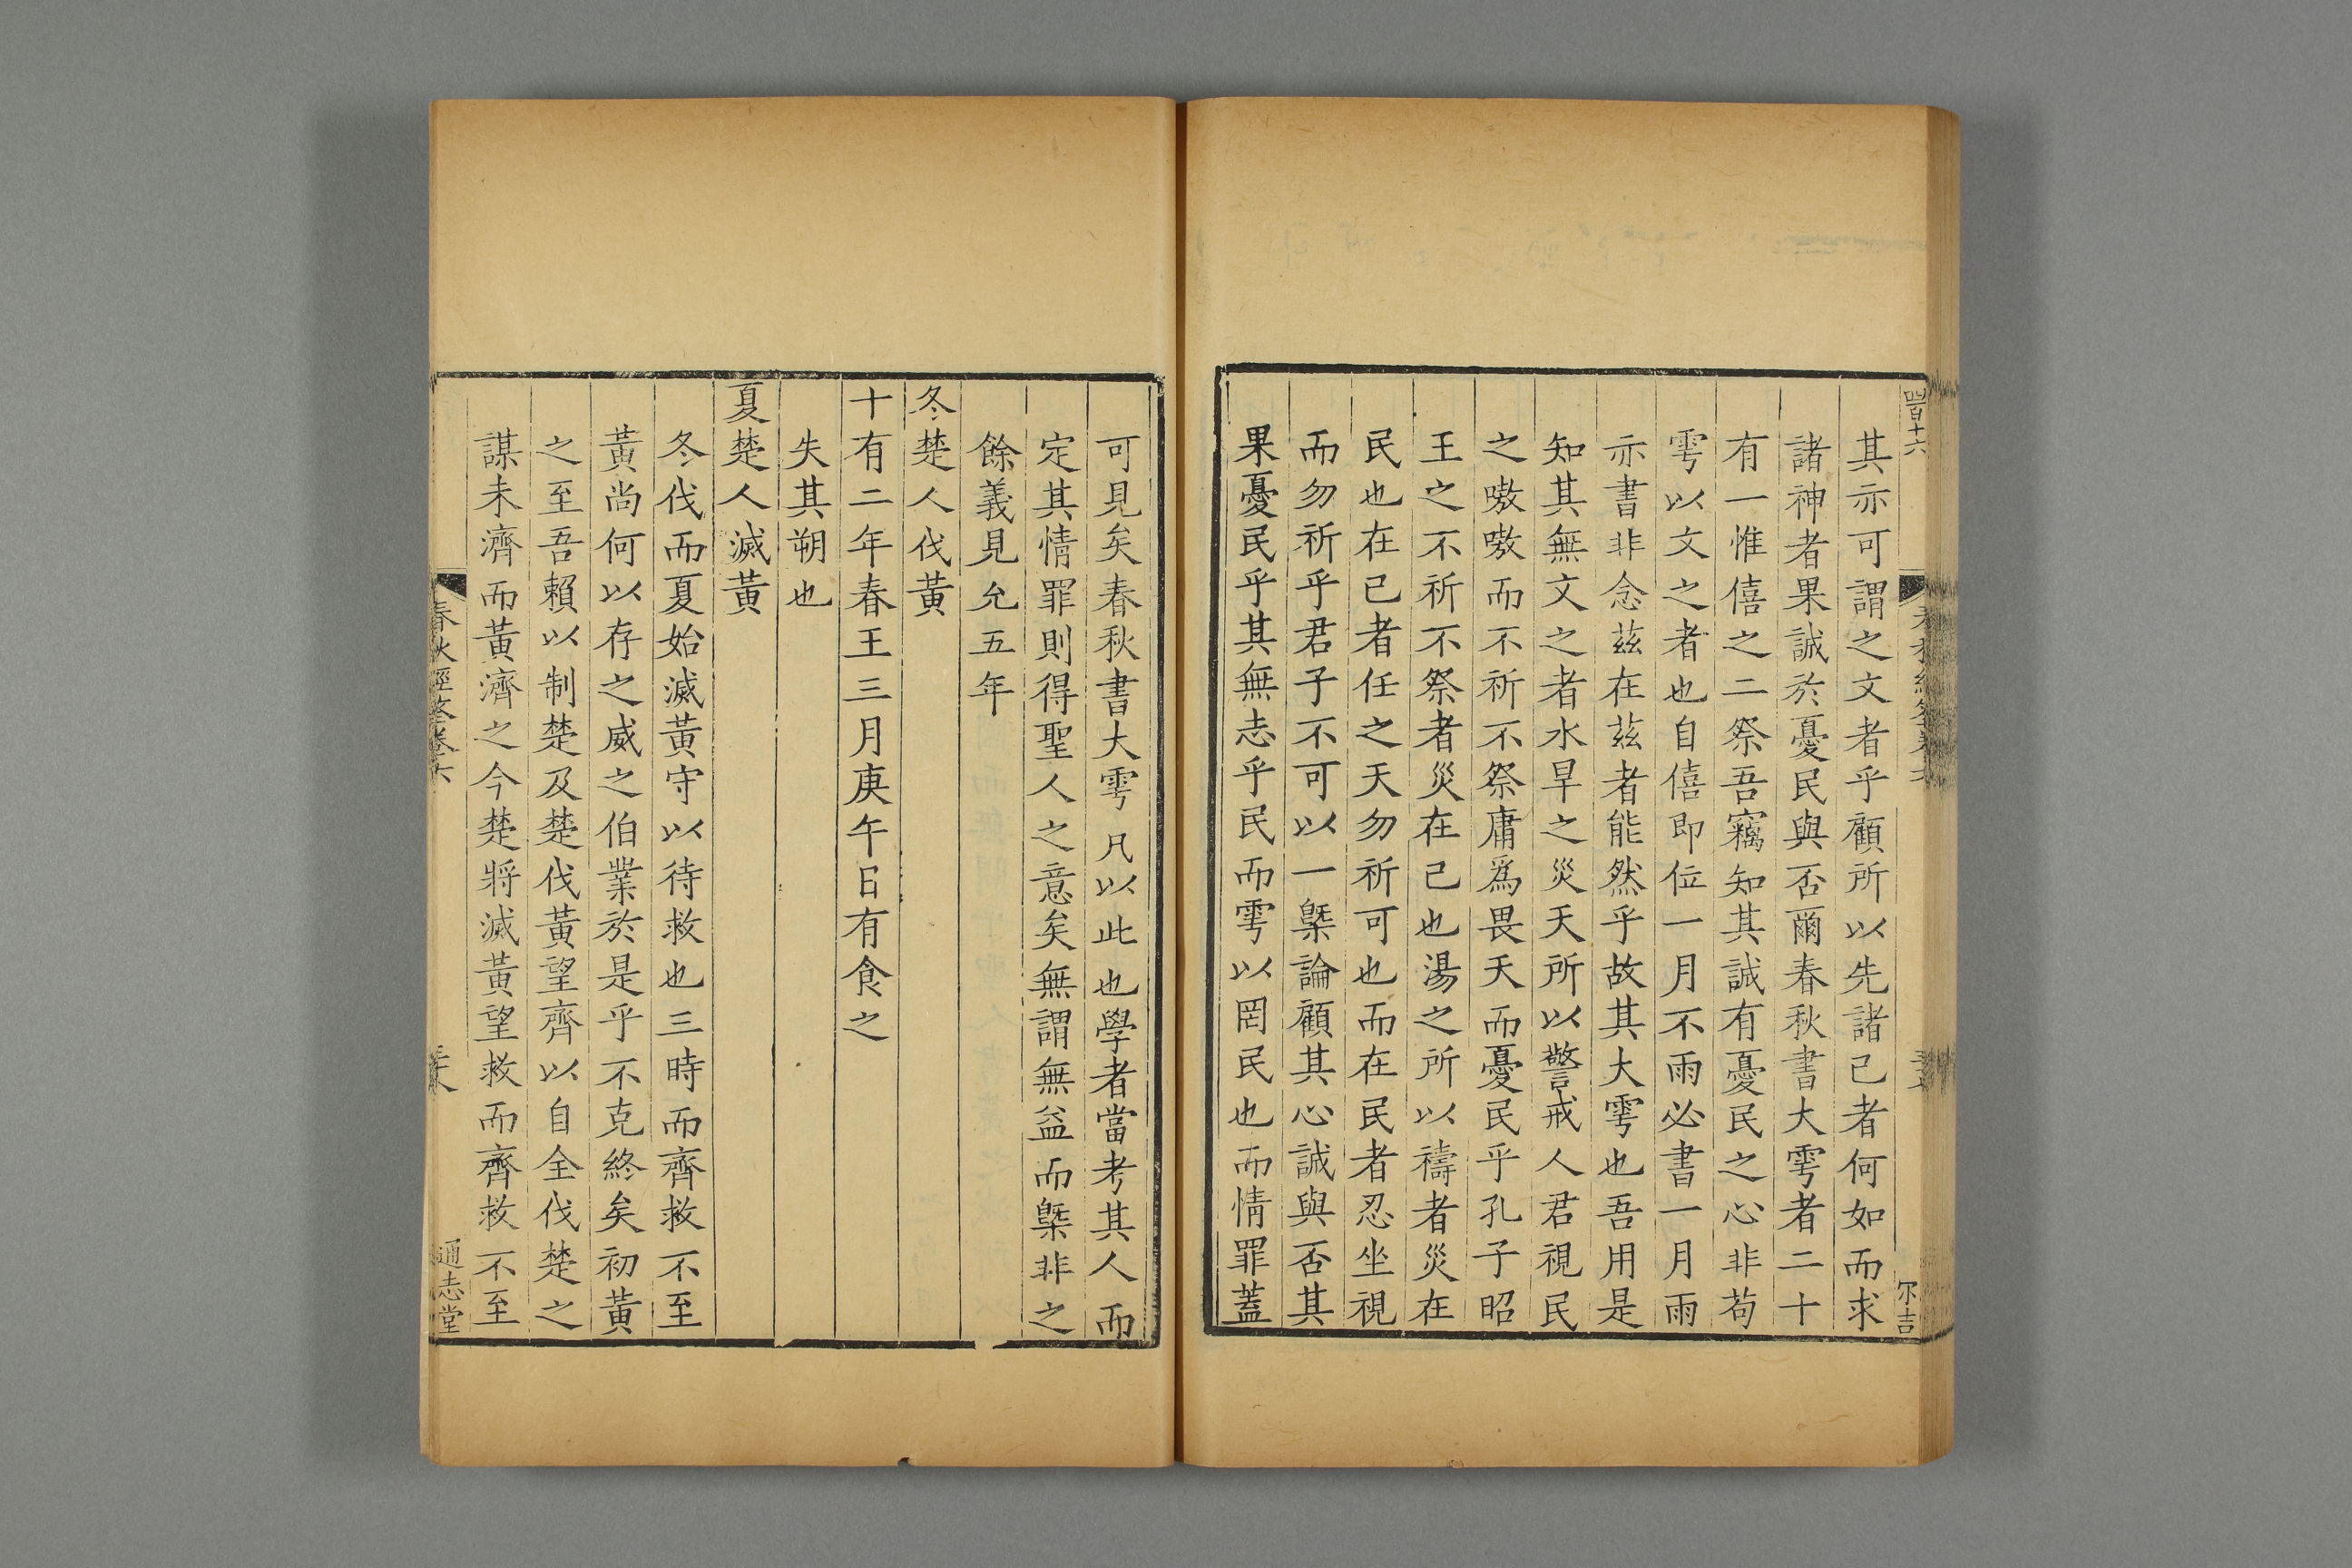 其亦可謂之文者乎顧所以先諸己者何如而求
諸神者果誠於憂民與否爾春秋書大雩者二十
有一惟僖之二祭吾竊知其誠有憂民之心非苟
雩以文之者也自僖即位一月不雨必書一月雨
亦書非念茲在茲者能然乎故其大雩也吾用是
知其無文之者水旱之災天所以警戒人君視民
之嗷嗷而不祈不祭庸爲畏天而憂民乎孔子昭
王之不祈不祭者災在己也湯之所以禱者災在
民也在己者任之天勿祈可也而在民者忍坐視
而勿祈乎君子不可以一槩論顧其心誠與否其
果憂民乎其無志乎民而雩以罔民也而情罪蓋
尔吉
可見矣春秋書大雩凡以此也學者當考其人而
定其情罪則得聖人之意矣無謂無益而槩非之
餘義見允五年
冬楚人伐黃
十有二年春王三月庚午日有食之
失其朔也
夏楚人滅黃
冬伐而夏始滅黃守以待救也三時而齊救不至
黃尚何以存之威之伯業於是乎不克終矣初黃
之至吾賴以制楚及楚伐黃望齊以自全伐楚之
謀未濟而黃濟之今楚將滅黃望救而齊救不至
春秋經筌卷六
通志堂